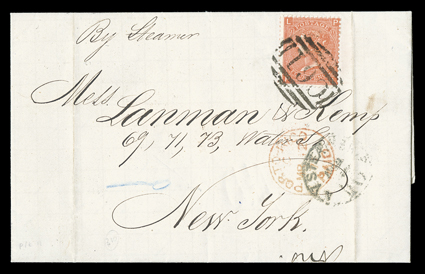 By Steamer
POSTAGE
Mess.
Lanman & Kemp
69, 71, 73, Water St
New York.